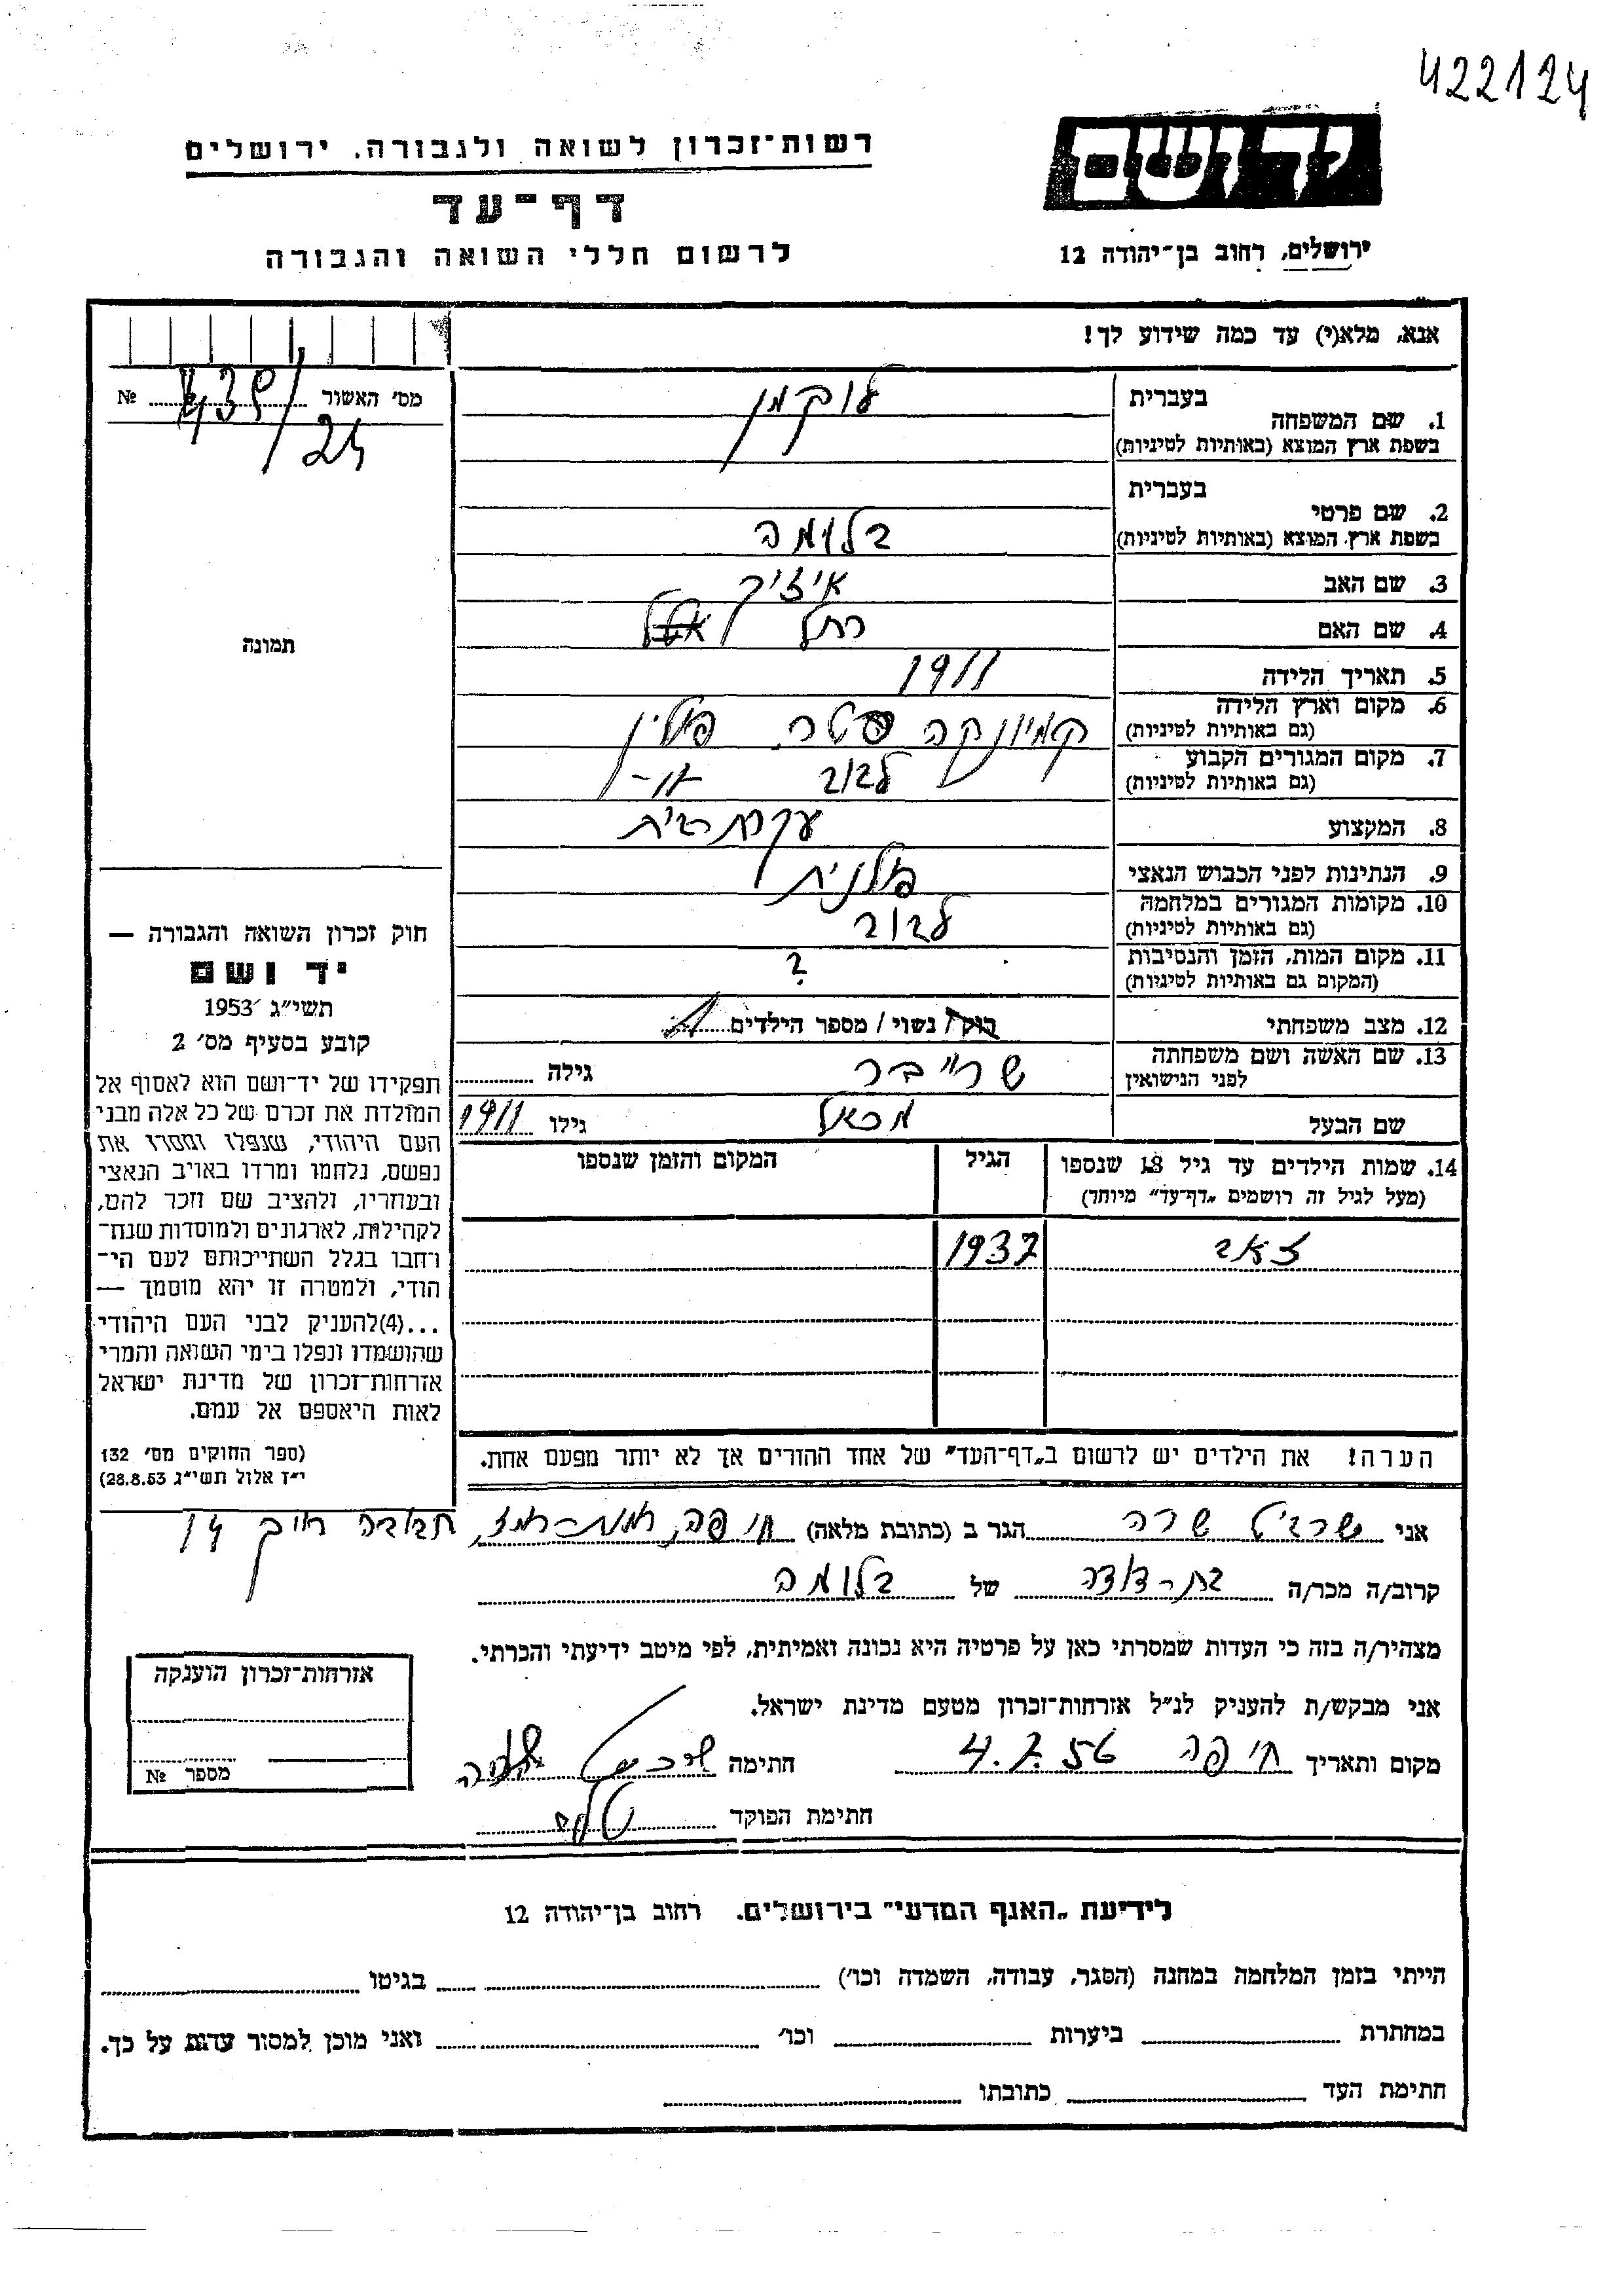 422124
ידושם
רשות־זכרון לשואה ולגבורה. ירושלים
דף־עד
לרשום חללי השואה והגבורה
ירושלים, רחוב בן־יהודה 12
אנא, מלא(י) עד כמה שידוע לך!
מס׳ האשור № 439/25
1. שם המשפחה בעברית לוקמן
בשפת ארץ המוצא (באותיות לטיניות)
2. שם פרטי בעברית
בשפת ארץ המוצא (באותיות לטיניות) בלומה
3. שם האב איזיק
4. שם האם רחל
תמונה
5. תאריך הלידה 1911
6. מקום וארץ הלידה קמיונקה פולין
(גם באותיות לטיניות)
7. מקום המגורים הקבוע לבוב
(גם באותיות לטיניות)
8. המקצוע עקרת בית
9. הנתינות לפני הכבוש הנאצי פולנית
10. מקומות המגורים במלחמה לבוב
(גם באותיות לטיניות)
11. מקום המות, הזמן והנסיבות ?
(המקום גם באותיות לטיניות)
12. מצב משפחתי רוק/ נשוי/ מספר הילדים 1
13. שם האשה ושם משפחתה שרייבר גילה
לפני הנישואין
שם הבעל מכאל גילו 1911
14. שמות הילדים עד גיל 18 שנספו הגיל המקום והזמן שנספו
(מעל לגיל זה רושמים „דף־עד״ מיוחד)
זאב 1937
הערה! את הילדים יש לרשום ב„דף־העד״ של אחד ההורים אך לא יותר מפעם אחת.
חוק זכרון השואה והגבורה —
יד ושם
תשי״ג 1953
קובע בסעיף מס׳ 2
תפקידו של יד־ושם הוא לאסוף אל
המולדת את זכרם של כל אלה מבני
העם היהודי, שנפלו ומסרו את
נפשם, נלחמו ומרדו באויב הנאצי
ובעוזריו, ולהציב שם וזכר להם,
לקהילות, לארגונים ולמוסדות שנח־
רחבו בגלל השתייכותם לעם הי־
הודי, ולמטרה זו יהא מוסמך —
...(4)להעניק לבני העם היהודי
שהושמדו ונפלו בימי השואה והמרי
אזרחות־זכרון של מדינת ישראל
לאות היאספם אל עמם.
(ספר החוקים מס׳ 132
י״ז אלול תשי״ג 28.8.53)
אני שרביט שרה הגר ב (כתובת מלאה) חיפה, רמת־רמז,
קרוב/ה מכר/ה בת־דודה של בלומה
מצהיר/ה בזה כי העדות שמסרתי כאן על פרטיה היא נכונה ואמיתית, לפי מיטב ידיעתי והכרתי.
אני מבקש/ת להעניק לנ״ל אזרחות־זכרון מטעם מדינת ישראל.
מקום ותאריך חיפה 4.7.56 חתימה
חתימת הפוקד
אזרחות־זכרון הוענקה
מספר №
לידיעת „האגף המדעי״ בירושלים. רחוב בן־יהודה 12
הייתי בזמן המלחמה במחנה (הסגר, עבודה, השמדה וכו׳) בגיטו
במחתרת ביערות וכו׳ ואני מוכן למסור עדות על כך.
חתימת העד כתובתו